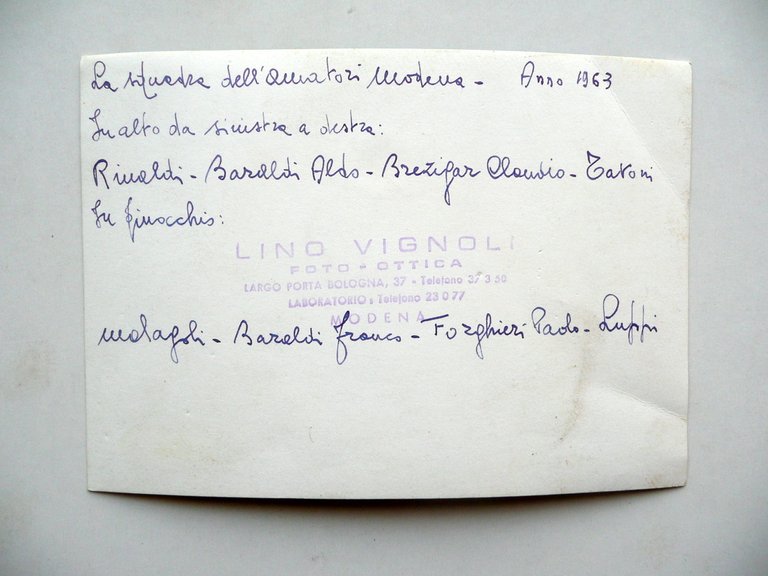 La squadra dell'Amatori Modena - Anno 1963
In alto da sinistra a destra:
Rinaldi - Baraldi Aldo - Brezigar Claudio - Tavoni
In ginocchio:
LINO VIGNOLI
FOTO - OTTICA
LARGO PORTA BOLOGNA, 37 - Telefono 37 3 50
LABORATORIO: Telefono 23 0 77
MODENA
Malagoli - Baraldi Franco - Forghieri Paolo - Luppi